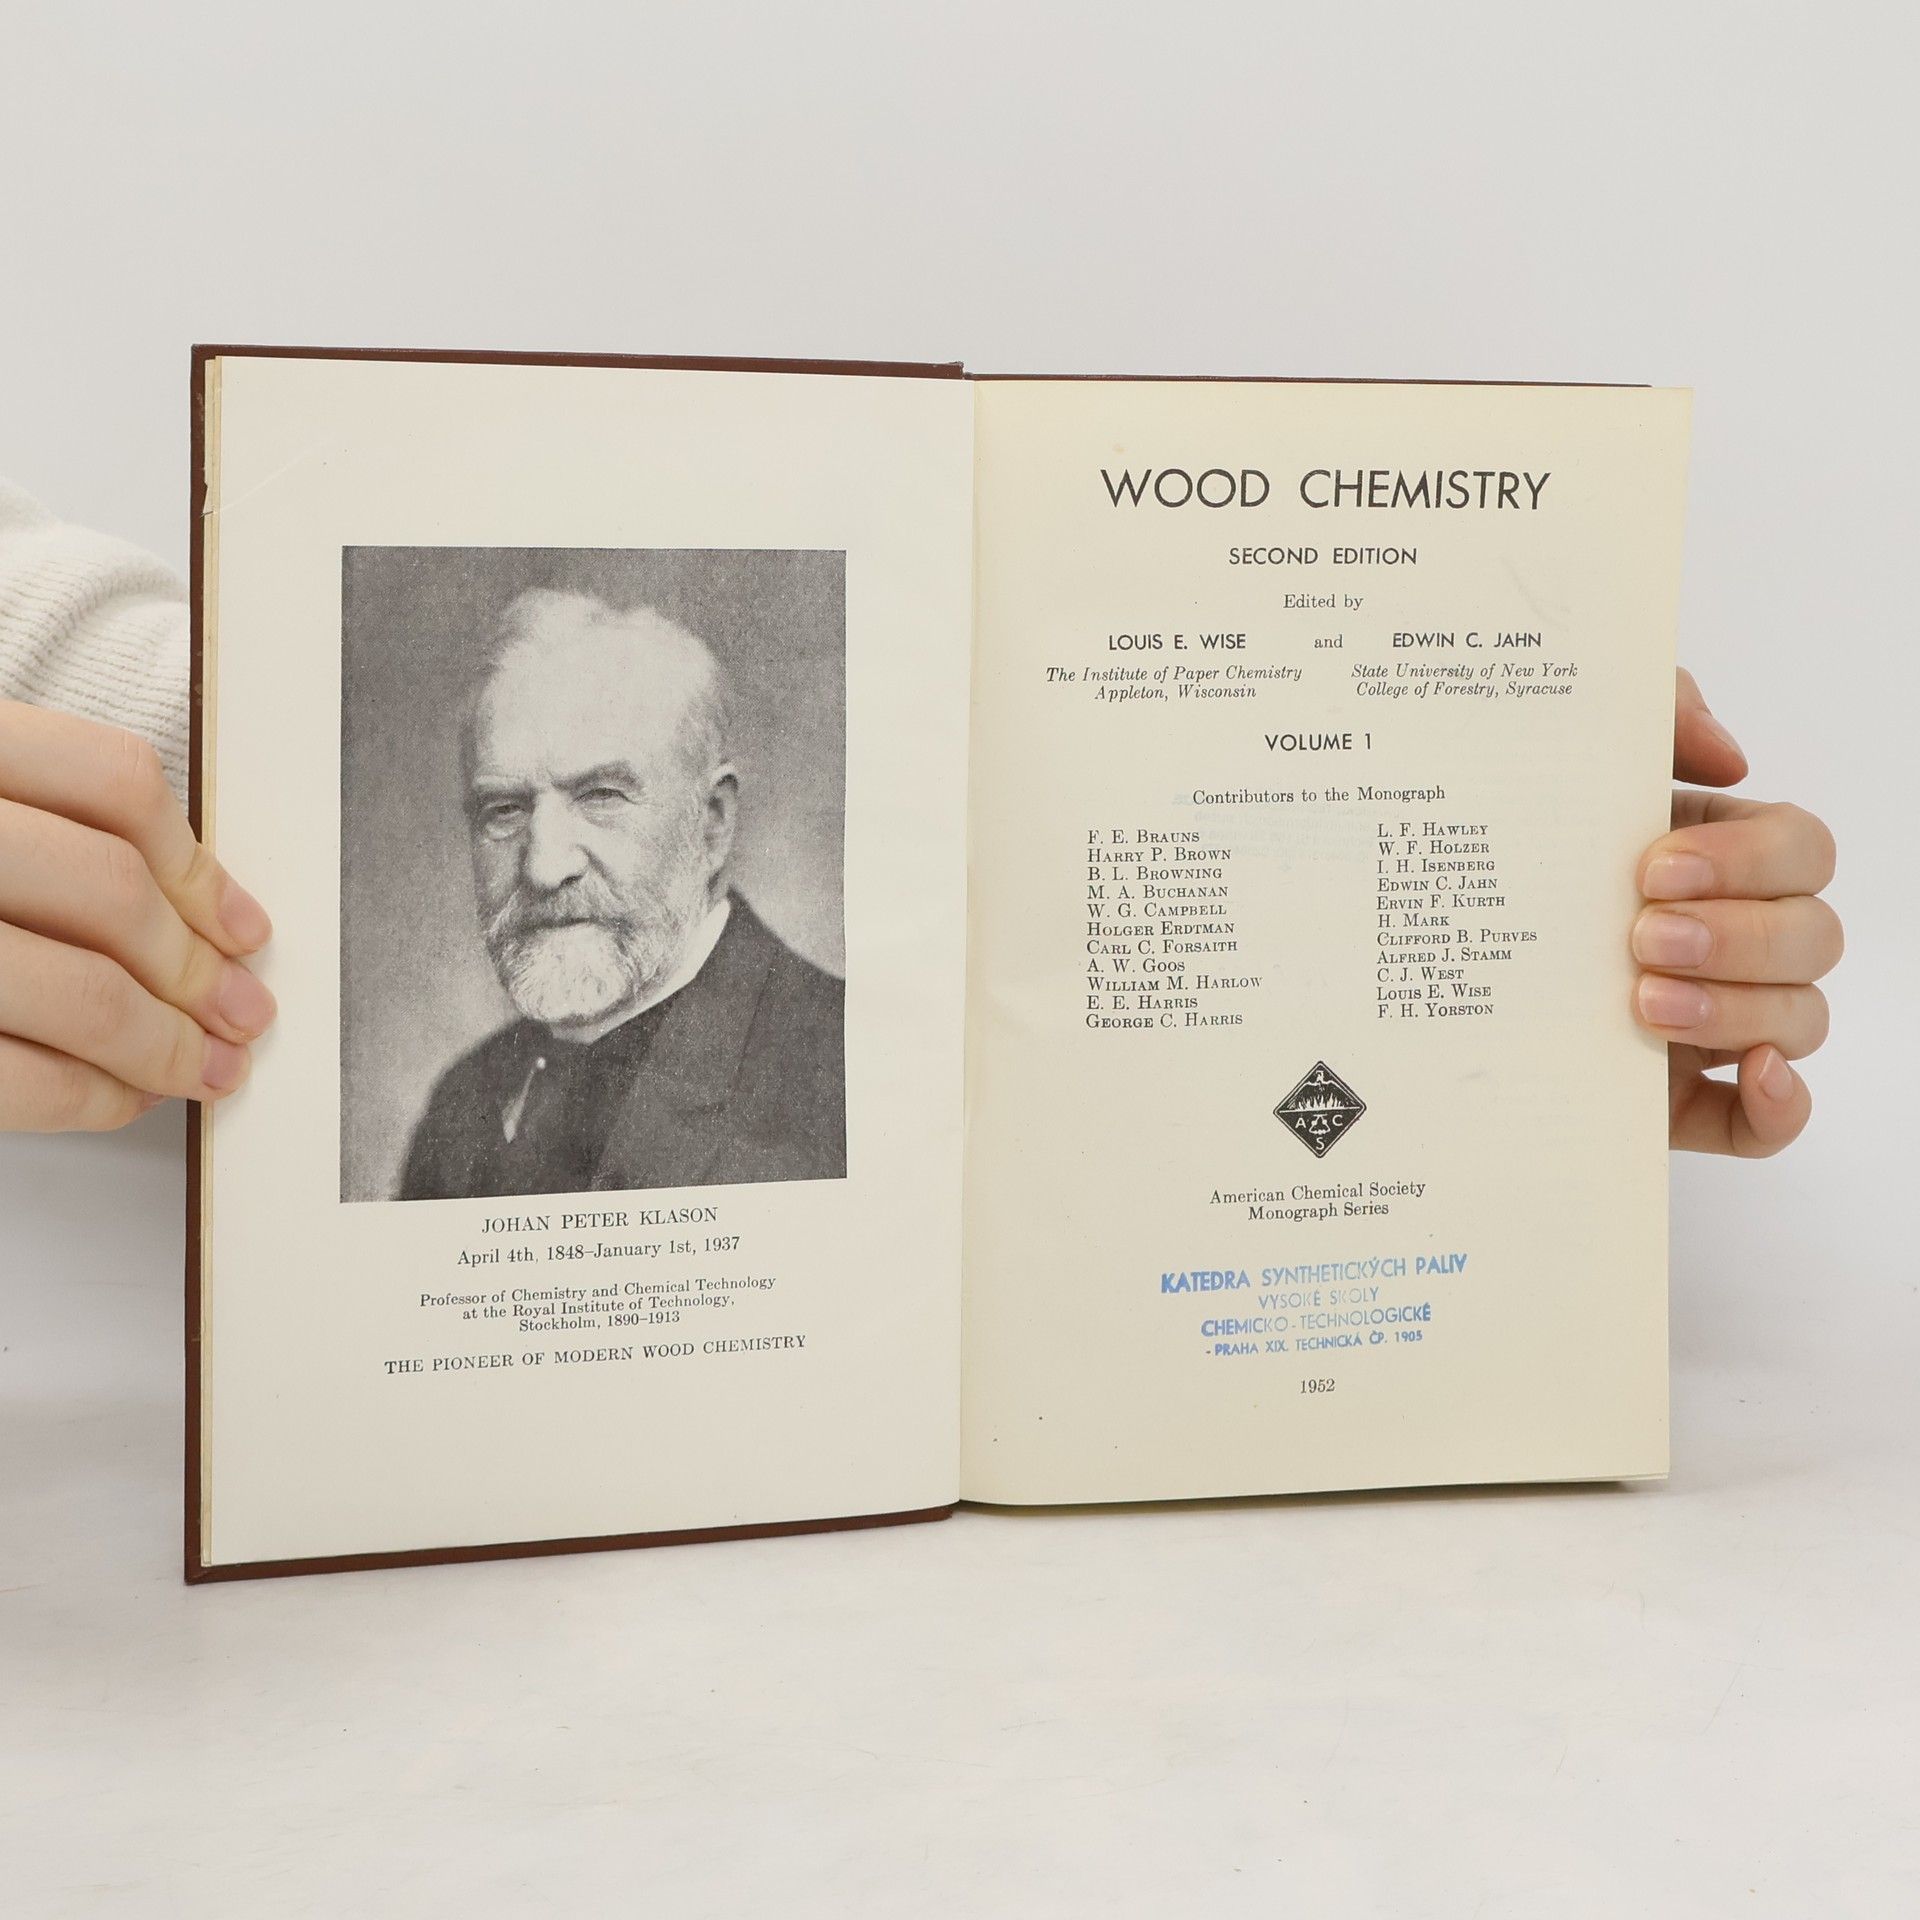 JOHAN PETER KLASON
April 4th, 1848–January 1st, 1937
Professor of Chemistry and Chemical Technology
at the Royal Institute of Technology,
Stockholm, 1890–1913
THE PIONEER OF MODERN WOOD CHEMISTRY
WOOD CHEMISTRY
SECOND EDITION
Edited by
LOUIS E. WISE and EDWIN C. JAHN
The Institute of Paper Chemistry State University of New York
Appleton, Wisconsin College of Forestry, Syracuse
VOLUME 1
Contributors to the Monograph
F. E. BRAUNS
HARRY P. BROWN
B. L. BROWNING
M. A. BUCHANAN
W. G. CAMPBELL
HOLGER ERDTMAN
CARL C. FORSAITH
A. W. GOOS
WILLIAM M. HARLOW
E. E. HARRIS
GEORGE C. HARRIS
L. F. HAWLEY
W. F. HOLZER
I. H. ISENBERG
EDWIN C. JAHN
ERVIN F. KURTH
H. MARK
CLIFFORD B. PURVES
ALFRED J. STAMM
C. J. WEST
LOUIS E. WISE
F. H. YORSTON
A C
S
American Chemical Society
Monograph Series
KATEDRA SYNTHETICKÝCH PALIV
VYSOKÉ SKOLY
CHEMICKO-TECHNOLOGICKÉ
- PRAHA XIX. TECHNICKÁ ČP. 1905
1952